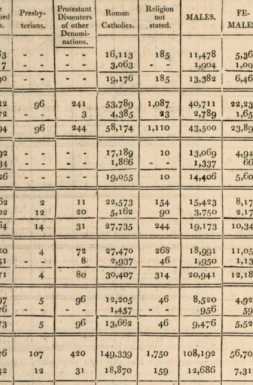 Presby-
terians.
Protestant
Dissenters
of other
Denomi-
nations.
Roman
Catholics.
Religion
not
stated.
MALES.
FE-
MALES
- - - - 16,113 185 11,478 5,36
- - - - 3,063 - - 1,904 1,09
- - - - 19,176 185 13,382 6,46
96 241 53,789 1,087 40,711 22,23
- - 3 4,385 23 2,789 1,65
96 244 58,174 1,110 43,500 23,89
- - - - 17,189 10 13,069 4,94
- - - - 1,866 - - 1,337 66
- - - - 19,055 10 14,406 5,60
2 11 22,573 154 15,423 8,17
12 20 5,162 90 3,750 2,17
14 31 27,735 244 19,173 10,34
4 72 27,470 268 18,991 11,05
- - 8 2,937 46 1,950 1,13
4 80 30,407 314 20,941 12,18
5 96 12,205 46 8,520 4,92
- - - - 1,457 - - 956 59
5 96 13,662 46 9,476 5,52
107 420 149,339 1,750 108,192 56,70
12 31 18,870 159 12,686 7,31